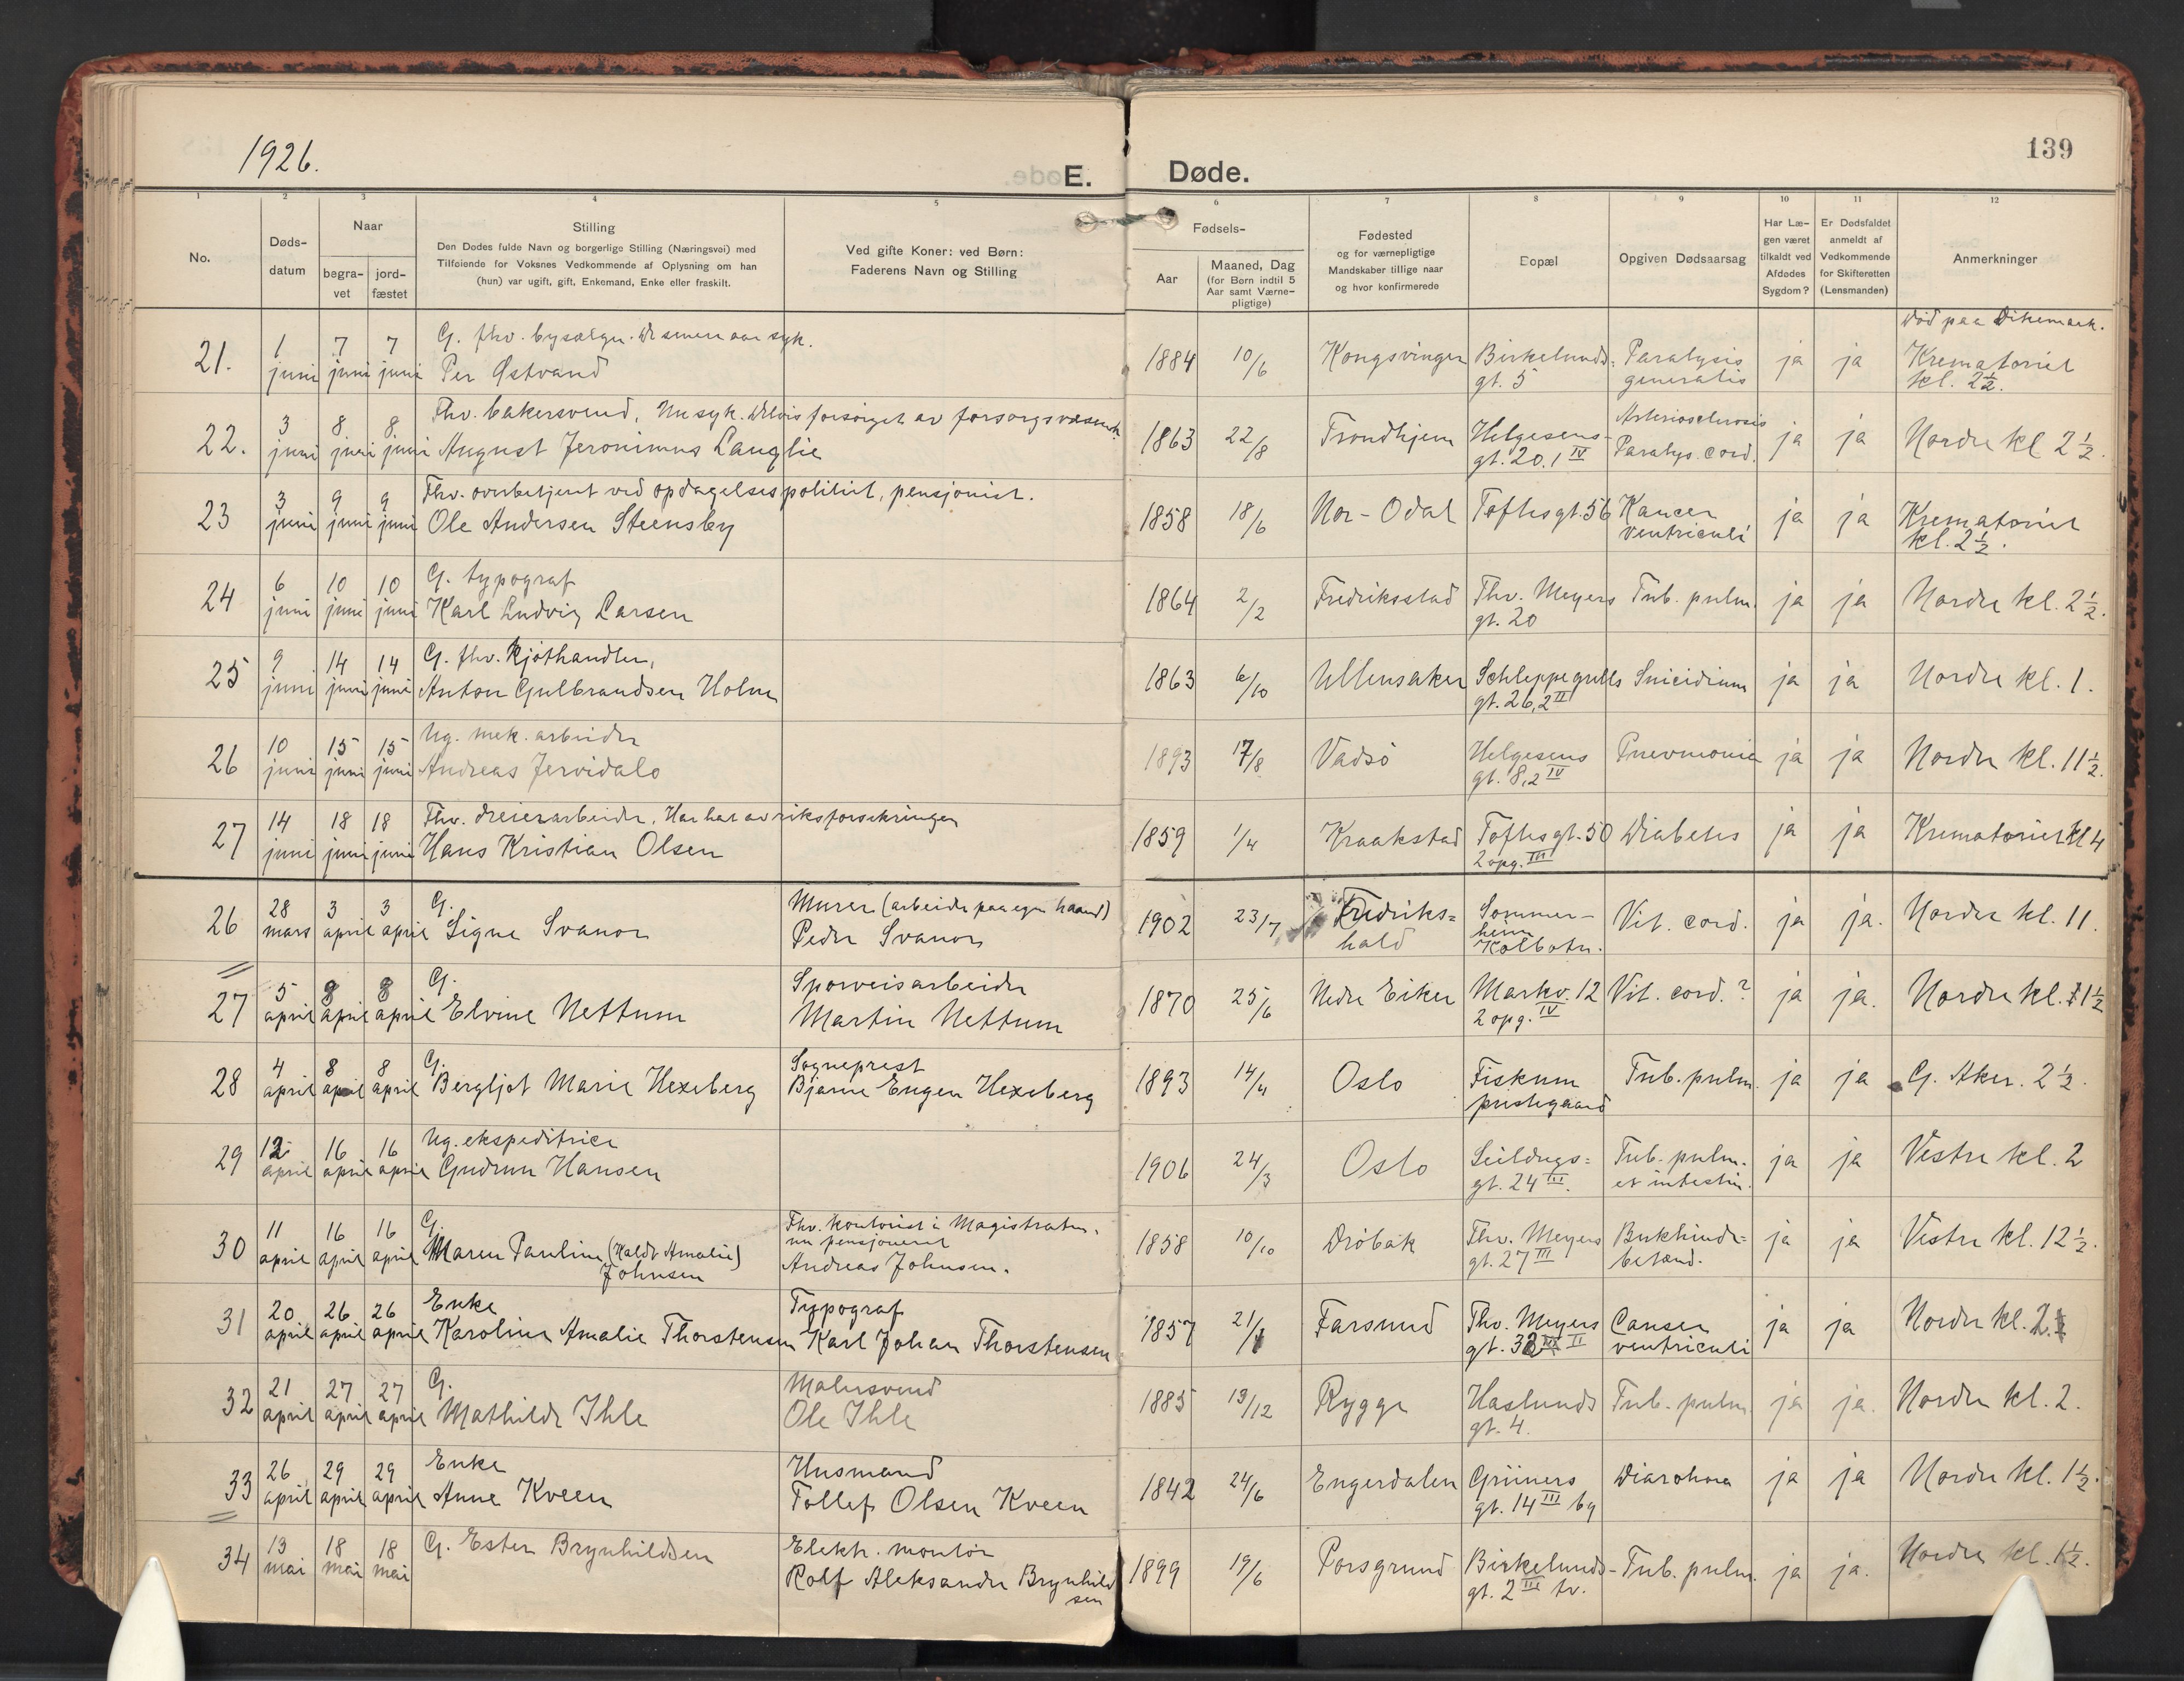 1926.
E. Døde.
139
1 2 3 4 5 6 7 8 9 10 11 12
No.
Døds-
datum
Naar
begra-
vet
jord-
fæstet
Stilling
Den Dødes fulde Navn og borgerlige Stilling (Næringsvei) med
Tilføiende for Voksnes Vedkommende af Oplysning om han
(hun) var ugift, gift, Enkemand, Enke eller fraskilt.
Ved gifte Koner: ved Børn:
Faderens Navn og Stilling
Fødsels-
Aar
Maaned, Dag
(for Børn indtil 5
Aar samt Værne-
pligtige)
Fødested
og for værnepligtige
Mandskaber tillige naar
og hvor konfirmerede
Bopæl
Opgiven Dødsaarsag
Har Læ-
gen været
tilkaldt ved
Afdødes
Sygdom?
Er Dødsfaldet
anmeldt af
Vedkommende
for Skifteretten
(Lensmanden)
Anmerkninger
G. fhv. bysælger. De senere aar syk. Død paa Dikemark.
21. 1 juni 7 juni 7 juni Per Østvand 1884 10/6 Kongsvinger Birkelunds- gt. 5 Paralysis generalis ja ja Krematoriet kl. 2½.
Fhv. bakersvend. Nu syk. Delvis forsørget av forsorgsvæsenet.
22. 3 juni 8 juni 8 juni August Jeronimus Langlie 1863 22/8 Trondhjem Helgesens- gt. 20.1 IV Arteriosclerosis Paralys. cord. ja ja Nordre kl 2½.
Fhv. overbetjent ved opdagelsespolitiet, pensjonist.
23 3 juni 9 juni 9 juni Ole Andersen Steensby 1858 18/6 Nor-Odal Toftesgt. 56 Kancer ventriculi ja ja Krematoriet kl. 2½.
G. typograf
24 6 juni 10 juni 10 juni Karl Ludvig Larsen 1864 2/2 Fredriksstad Thv. Meyers gt. 20 Tub. pulm. ja ja Nordre kl. 2½.
G. fhv. kjøthandler,
25 9 juni 14 juni 14 juni Anton Gulbrandsen Holm 1863 6/10 Ullensaker Schleppegrells gt. 26,2 II Suicidium ja ja Nordre kl. 1.
Ug. mek. arbeider
26 10 juni 15 juni 15 juni Andreas Jervidalo 1893 17/8 Vadsø Helgesens gt. 8,2 IV Pneumonia ja ja Nordre kl. 11½.
Fhv. dreierarbeider. Har hat av riksforsikringen
27 14 juni 18 juni 18 juni Hans Kristian Olsen 1859 1/4 Kraakstad Toftesgt. 50 2 opg. III Diabetes ja ja Krematoriet kl 4
G. Murer (arbeider paa egen haand)
26 28 mars 3 april 3 april Signe Svanor Peder Svanor 1902 23/7 Fredriks= hald Sommer- heim Kolbotn. Vit. cord. ja ja. Nordre kl. 11.
G. Sporveisarbeider
27 5 april 8 april 8 april Elvine Nettum Martin Nettum 1870 25/6 Nedre Eiker Markv. 12 2 opg. IV Vit. cord.? ja ja. Nordre kl. 1½
G. Sogneprest
28 4 april 8 april 8 april Bergljot Marie Hexeberg Bjarne Eugen Hexeberg 1893 14/4 Oslo Fiskum prestegaard Tub. pulm. ja ja G. Aker. 2½.
Ug. ekspeditrice
29 12 april 16 april 16 april Gudrun Hansen 1906 24/3 Oslo Seildugs= gt. 24 III. Tub. pulm. et intestin. ja ja Vestre kl. 2
G. Fhv. kontorist i Magistraten, nu pensjonert
30 11 april 16 april 16 april Maren Pauline (kaldt Amalie) Johnsen Andreas Johnsen. 1858 10/10 Drøbak Thv. Meyers gt. 27 III Bukhinde= betænd. ja ja Vestre kl. 12½.
Enke Typograf
31 20 april 26 april 26 april Karoline Amalie Thorstensen Karl Johan Thorstensen 1857 21/1 Farsund Thv. Meyers gt. 32 II Cancer ventriculi ja ja Nordre kl. 2.
G. Malersvend
32 21 april 27 april 27 april Mathilde Ihle Ole Ihle 1885 19/12 Rygge Haslunds gt. 4. Tub. pulm. ja ja. Nordre kl. 2.
Enke Husmand
33 26 april 29 april 29 april Anne Kveen Tollef Olsen Kveen 1842 24/6 Engerdalen Grüners gt. 14 III bg Diarohoea ja ja Nordre kl. 1½.
34 13 mai 18 mai 18 mai G. Ester Brynhildsen Elektr. montør Rolf Aleksander Brynhildsen 1899 19/6 Porsgrund Birkelunds- gt. 2 III tv. Tub. pulm. ja ja. Nordre kl. 1½.